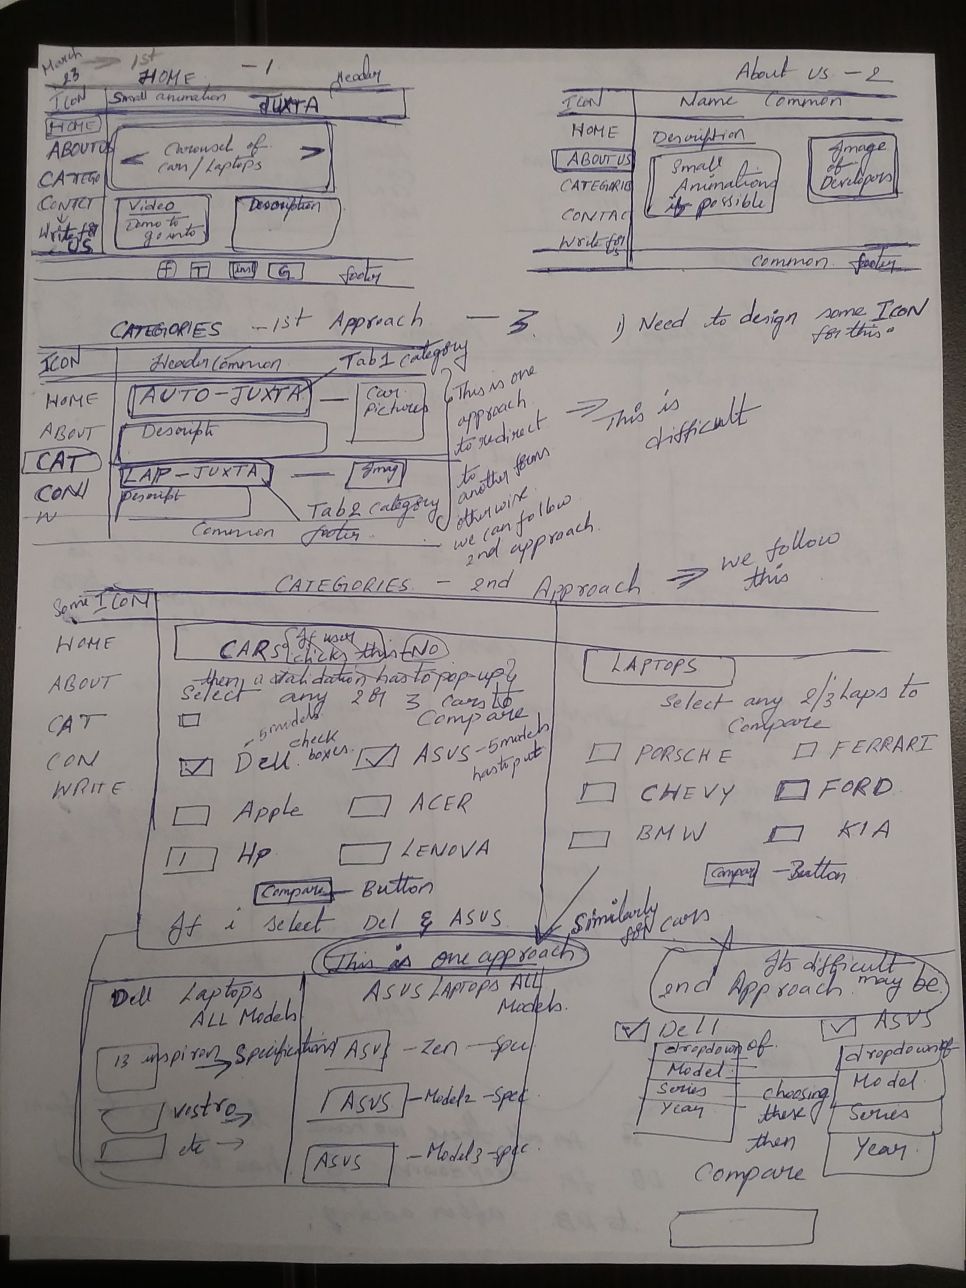 March 23 → 1st
HOME - 1
Header
ICON
Small animation
JUXTA
HOME
ABOUT US
CATEGO
CONTCT
Write for US
< Carousel of cars/Laptops >
Video
Demo to
Description
f T Inst G
footer
About US - 2
ICON
Name Common
HOME
ABOUT US
CATEGORIE
CONTAC
Write for US
Description
Small
Animations
if possible
Image
of
Developers
Common footer
CATEGORIES - 1st Approach - 3
1) Need to design some ICON
for this.
ICON
Header Common
Tab1 category
HOME
ABOUT
CAT
CON
W
AUTO-JUXTA
Car
Pictures
Descripti
LAP-JUXTA
Imag
Descript
Tab2 category
Common footer
This is one
approach
to redirect
to
another forms
otherwise
we can follow
2nd approach.
⇒ This is
difficult
CATEGORIES - 2nd Approach ⇒ we follow
this
Some ICON
HOME
ABOUT
CAT
CON
WRITE
CARS If user
clicks this NO
then a validation has to pop-up
Select any 2 or 3 cars to
Compare
5 models
check
boxes.
Dell
ASUS - 5 models
has to put
Apple
ACER
HP
LENOVA
Compare - Button
If i select Del & ASUS
LAPTOPS
Select any 2/3 Laps to
Compare
PORSCHE
FERRARI
CHEVY
FORD
BMW
KIA
Compar - Button
Similarly
for cars
This is one approach
Dell Laptops
ALL Models
ASUS LAPTOPS ALL
Models.
13 inspiron → Specifications
vostro →
etc →
ASUS - Zen - Spec
ASUS - Model2 - Spec
ASUS - Model3 - spec.
Its difficult
2nd Approach may be
Dell
ASUS
dropdown of
Model
Series
Year
choosing
these
then
Compare
dropdown of
Model
Series
Year